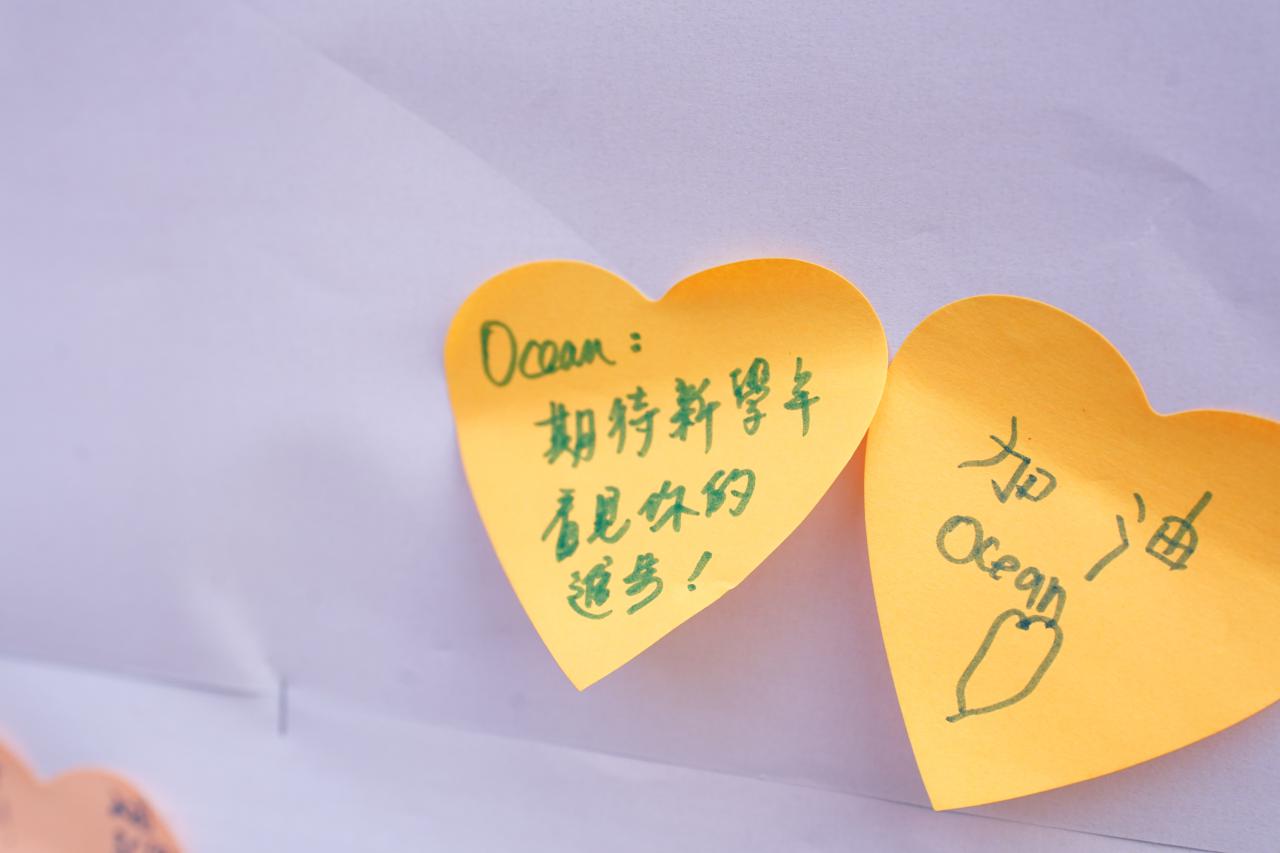 Ocean：
期待新學年
看見你的
進步！
加油
Ocean